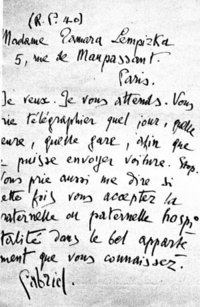 (R.P. 40)
Madame Tamara Lempizka
5, rue de Maupassant.
Paris.
Je veux. Je vous attends. Vous
me télégraphier quel jour, quelle
eure, quelle gare, afin que
puisse envoyer voiture. Stop.
ous prie aussi me dire si
ette fois vous acceptez la
aternelle ou paternelle hospi
talité dans le bel apparte
ment que vous connaissez.
Gabriel.